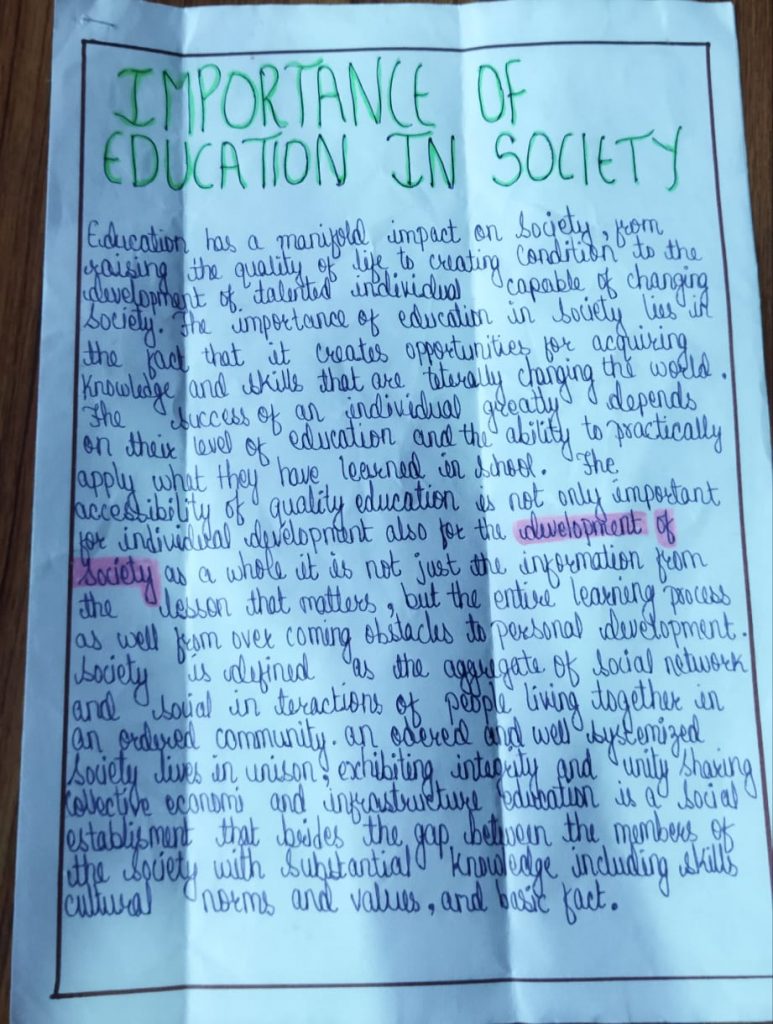 IMPORTANCE OF
EDUCATION IN SOCIETY
Education has a manifold impact on Society, from
raising the quality of life to creating condition to the
development of talented individual capable of changing
society. The importance of education in society lies in
the fact that it creates opportunities for acquiring
knowledge and skills that are literally changing the world.
The success of an individual greatly depends
on their level of education and the ability to practically
apply what they have learned in school. The
accessibility of quality education is not only important
for individual development also for the development of
society as a whole it is not just the information from
the lesson that matters, but the entire learning process
as well from over coming obstacles to personal development.
society is defined as the aggregate of social network
and social in teractions of people living together in
an ordered community. an odered and well systemized
society lives in unison, exhibiting integrity and unity sharing
collective economi and infrastructure education is a social
establisment that brides the gap between the members of
the society with substantial knowledge including skills
cultural norms and values, and basic fact.